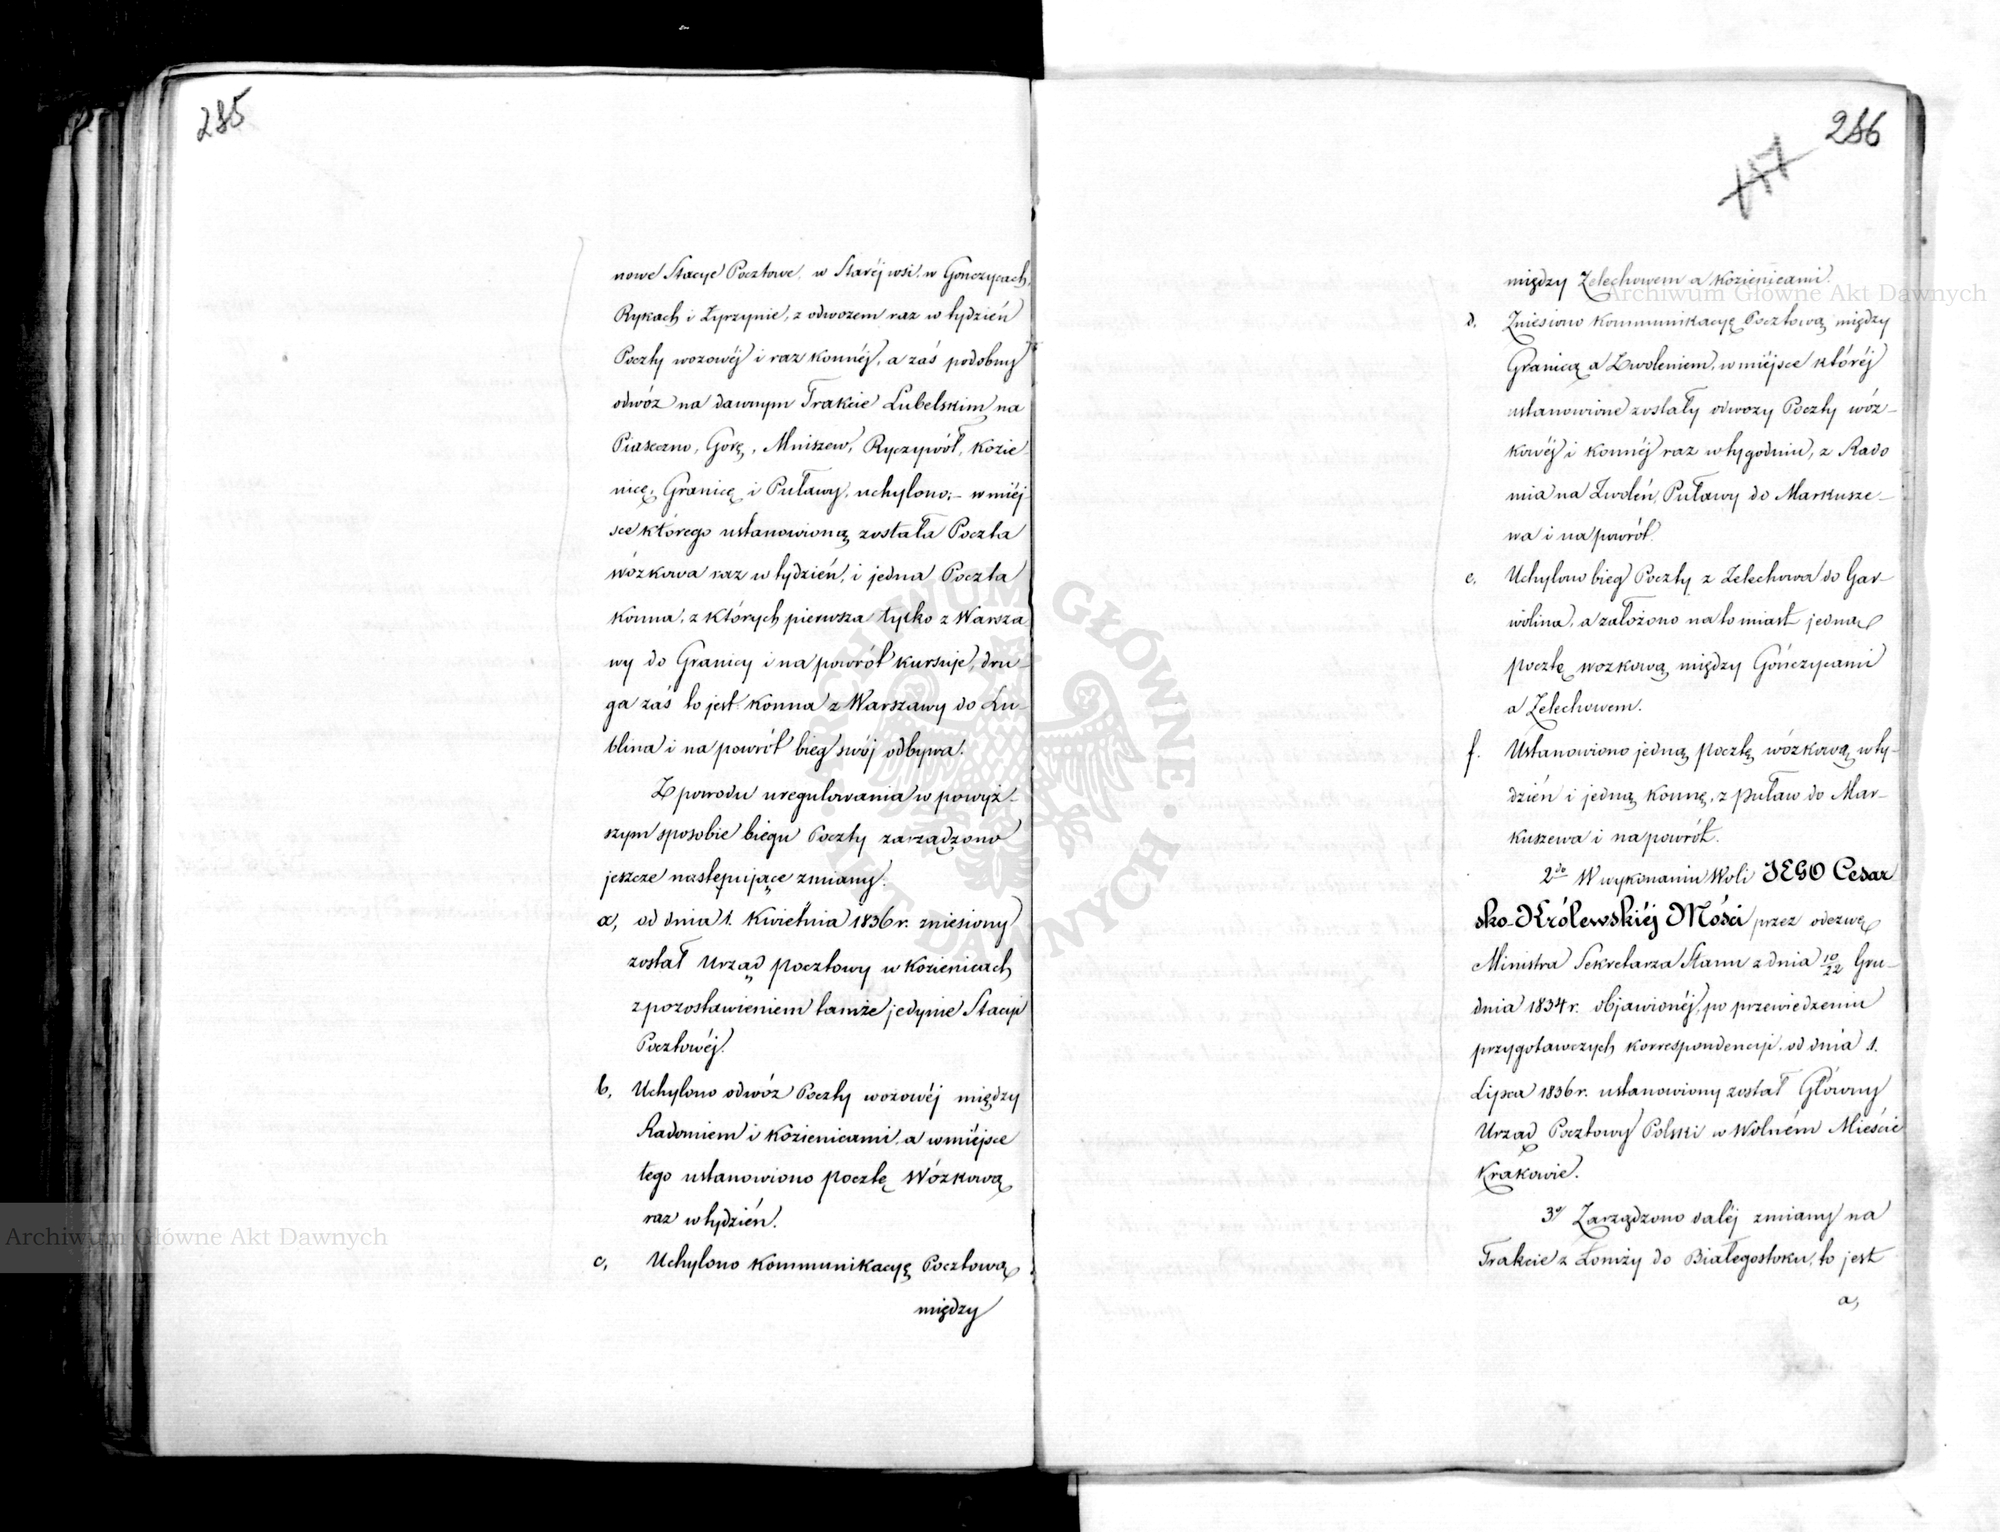 285
nowe Stacye Pocztowe, w Staréj wsi, w Gonczycach,
Rykach i Żyrzynie, z odwozem raz w tydzień
Poczty wozowéj i raz konnéj, a zaś podobny
odwóz na dawnym Trakcie Lubelskim na
Piaseczno, Gorę, Mniszew, Ryczywół, Kozie-
nicę, Granicę i Puławy, uchylono; – w miéj
sce którego ustanowioną została Poczta
wózkowa raz w tydzień, i jedna Poczta
konna, z których pierwsza tylko z Warsza-
wy do Granicy i na powrót kursuje, dru-
ga zaś to jest konna z Warszawy do Lu-
blina i na powrót bieg swój odbywa.
Z powodu uregulowania w powyż-
szym sposobie biegu Poczty zarządzono
jeszcze następujące zmiany:
a, od dnia 1. Kwietnia 1836 r. zniesiony
został Urząd pocztowy w Kozienicach
z pozostawieniem tamże jedynie Stacyi
Pocztowéj.
b, Uchylono odwóz Poczty wozowéj między
Radomiem i Kozienicami, a w miéjsce
tego ustanowiono pocztę Wózkową
raz w tydzień.
c, Uchylono Kommunikacyę Pocztową
między
286
117
między Zelechowem a Kozienicami.
d. Zniesiono Kommunikacyę Pocztową między
Granicą a Zwoleniem, w miéjsce któréj
ustanowione zostały odwozy Poczty wóz-
kowéj i konnéj raz w tygodniu, z Rado
mia na Zwoleń, Puławy do Markusze-
wa i na powrót.
e. Uchylono bieg Poczty z Zelechowa do Gar-
wolina, a założono natomiast jedną
pocztę wozkową między Gończycami
a Zelechowem.
f. Ustanowiono jedną pocztę wózkową w ty-
dzień i jedną konnę, z Puław do Mar-
kuszewa i na powrót.
2do W wykonaniu Woli JEGO Cesar
sko-Królewskiéj Mości przez odezwę
Ministra Sekretarza Stanu z dnia 10/22 Gru-
dnia 1834 r. objawionéj, po przewiedzeniu
przygotawczych korrespondencyi, od dnia 1.
Lipca 1836 r. ustanowiony został Główny
Urząd Pocztowy Polski w Wolném Mieście
Krakowie.
3o Zarządzono daléj zmiany na
Trakcie z Łomży do Białegostoku, to jest
a,
Archiwum Główne Akt Dawnych
Archiwum Główne Akt Dawnych
ARCHIWUM GŁÓWNE AKT DAWNYCH